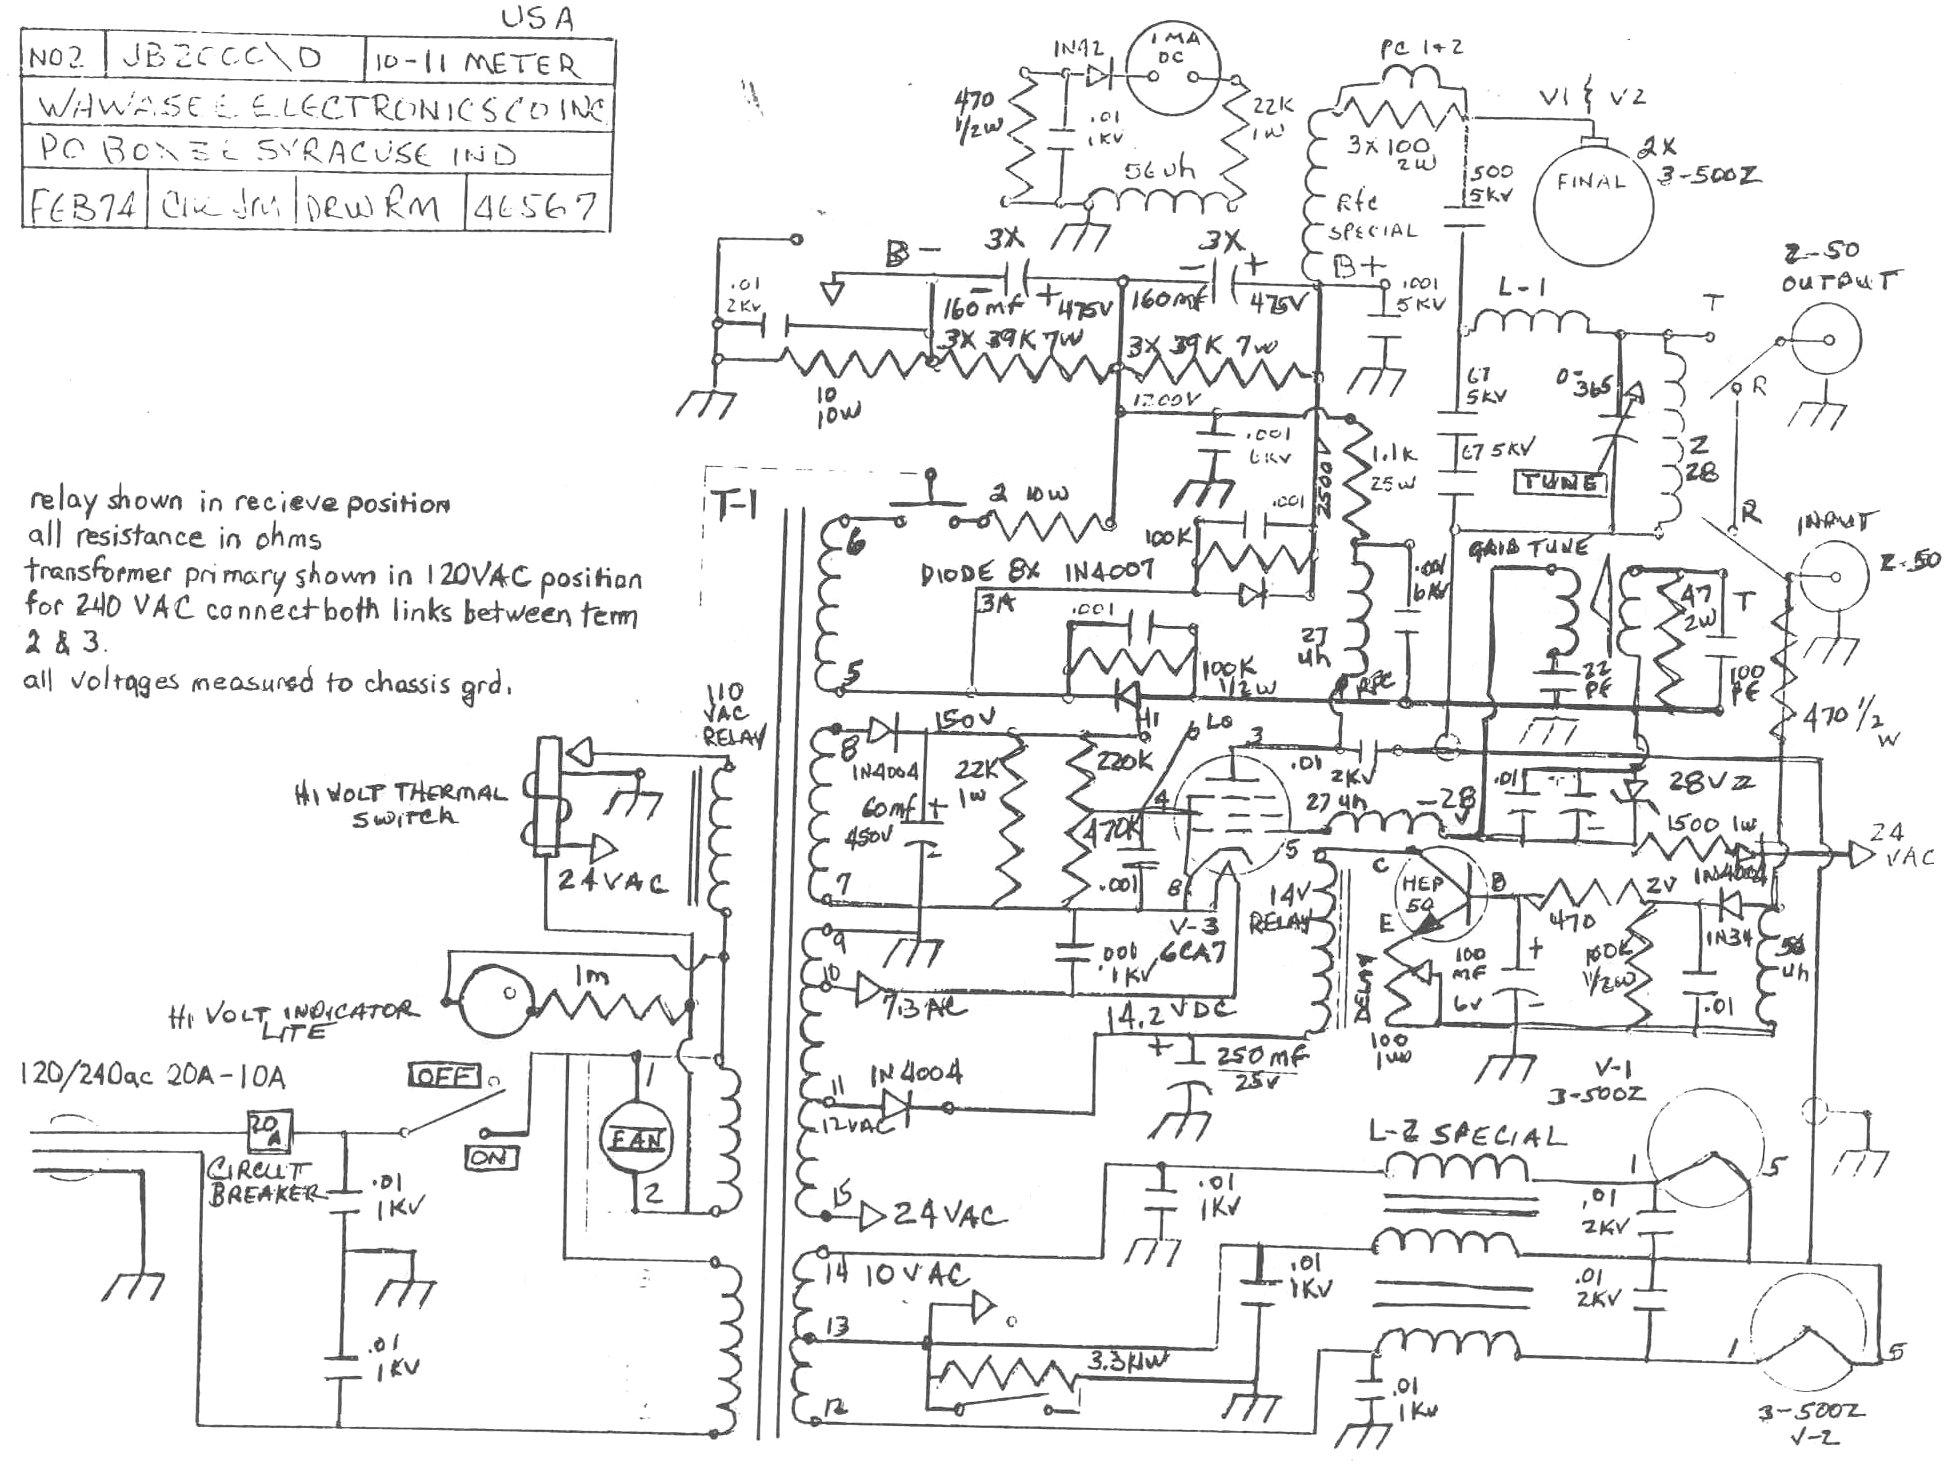 USA
NO2 JB2CCC\D 10-11 METER
WAWASEE ELECTRONICS CO INC
PO BOX SYRACUSE IND
FEB74 CIR JM DRW RM 46567
relay shown in recieve position
all resistance in ohms
transformer primary shown in 120VAC position
for 240 VAC connect both links between term
2 & 3.
all voltages measured to chassis grd.
1N92
1 MA
DC
470
1/2W
.01
1KV
56uh
22K
1W
PC 1+2
3X100
2W
Rfc
SPECIAL
B+
V1 V2
FINAL
2X
3-500Z
500
5KV
B-
3X
160mf
475V
3X
160mf
475V
.01
2KV
3X 39K 7W
3X 39K 7W
10
10W
1200V
.001
5KV
.001
6KV
2500V
1.1K
25W
L-1
67
5KV
67 5KV
0-365
TUNE
Z
28
T
R
Z-50
OUTPUT
R
T
INPUT
Z-50
T-1
6
5
2 10W
DIODE 8X 1N4007
3A
100K
.001
.001
100K
1/2W
27
uh
RFC
.001
6KV
GRID TUNE
22
PF
47
2W
100
PF
470 1/2
W
110
VAC
RELAY
HI VOLT THERMAL
SWITCH
24VAC
8
1N4004
150V
HI
LO
22K
1W
220K
60mf
450V
470K
.001
7
4
3
5
8
V-3
6CA7
.01
2KV
27uh
-28
V
.01
28V Z
1500 1W
1N4004
24
VAC
9
10
7.3 AC
.001
1KV
14.2 VDC
14V
RELAY
C
HEP
50
B
E
DELAY
100
1W
470
2V
100
MF
6V
100K
1/2W
1N34
.01
56
uh
11
12VAC
1N4004
250MF
25V
HI VOLT INDICATOR
LITE
1m
120/240ac 20A-10A
OFF
ON
20
A
CIRCUIT
BREAKER
.01
1KV
.01
1KV
1
FAN
2
15
24VAC
14
10VAC
13
12
3.3K 1W
.01
1KV
.01
1KV
.01
1KV
L-2 SPECIAL
.01
2KV
.01
2KV
V-1
3-500Z
1
5
1
5
3-500Z
V-2